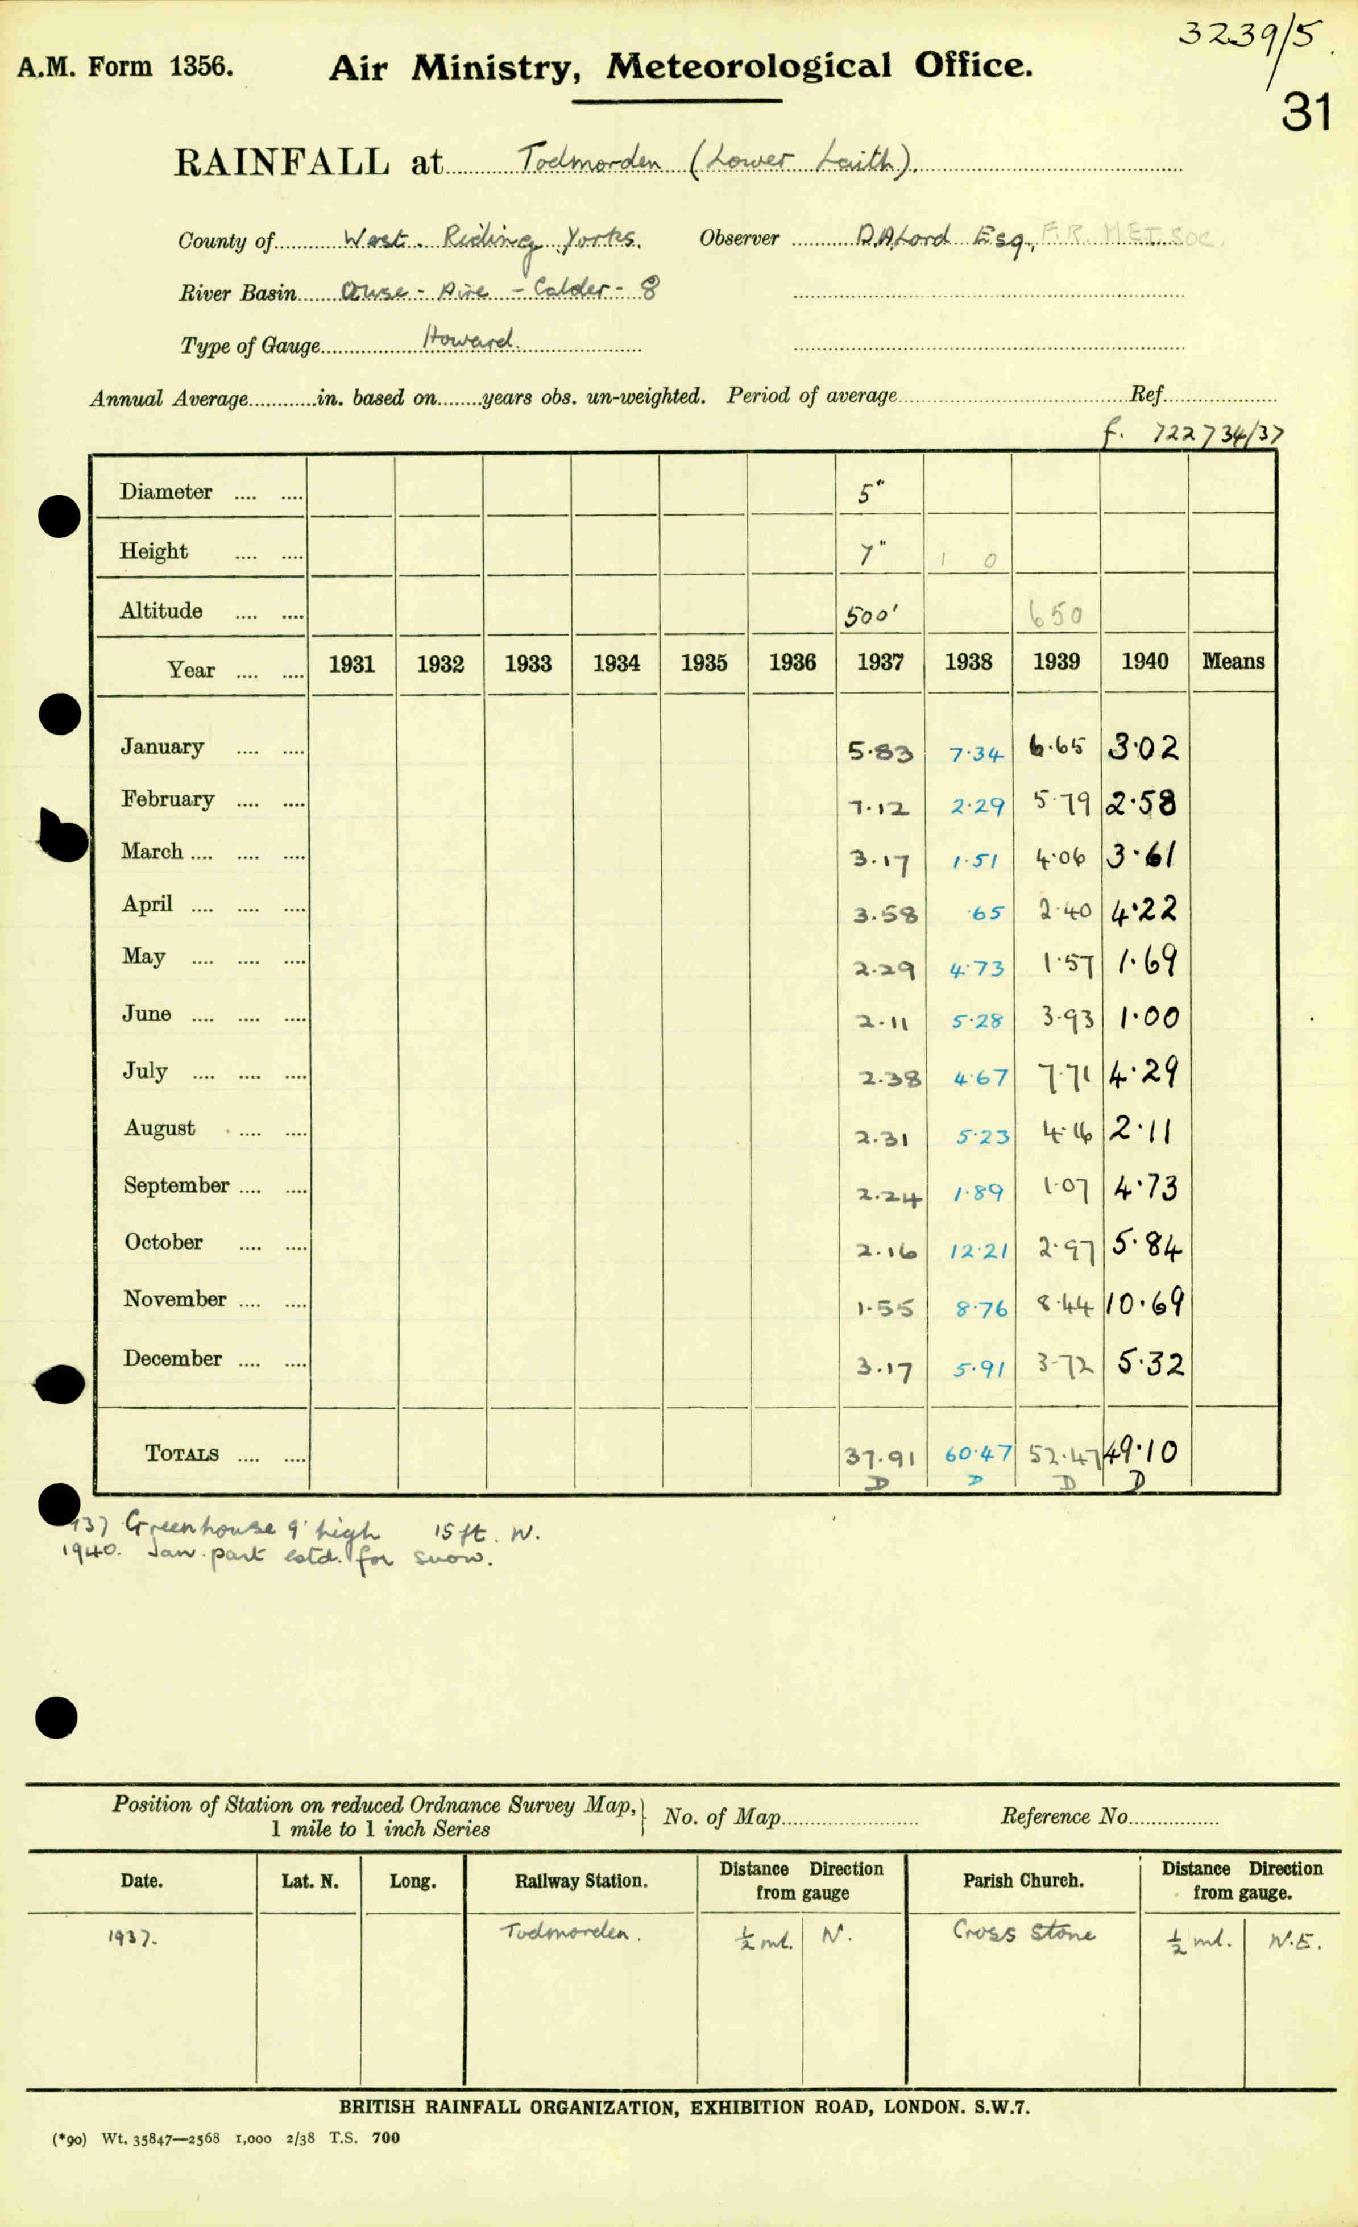 3239/5.
A.M. Form 1356. Air Ministry, Meteorological Office.
31
RAINFALL at Todmorden (Lower Laith).
County of West. Riding Yorks. Observer D.A. Lord Esq., F.R. MET. SOC.
River Basin Ouse - Aire - Calder - 8
Type of Gauge Howard.
Annual Average in. based on years obs. un-weighted. Period of average Ref.
f. 722734/37
Diameter 5"
Height 7" 1 0
Altitude 500' 650
Year 1931 1932 1933 1934 1935 1936 1937 1938 1939 1940 Means
January 5.83 7.34 6.65 3.02
February 7.12 2.29 5.79 2.58
March 3.17 1.51 4.06 3.61
April 3.58 .65 2.40 4.22
May 2.29 4.73 1.57 1.69
June 2.11 5.28 3.93 1.00
July 2.38 4.67 7.71 4.29
August 2.31 5.23 4.16 2.11
September 2.24 1.89 1.07 4.73
October 2.16 12.21 2.97 5.84
November 1.55 8.76 8.44 10.69
December 3.17 5.91 3.72 5.32
TOTALS 37.91 60.47 52.47 49.10
D D D D
937 Greenhouse 9' high 15 ft. W.
1940. Jan. part estd. for snow.
Position of Station on reduced Ordnance Survey Map, 1 mile to 1 inch Series } No. of Map Reference No.
Date. Lat. N. Long. Railway Station. Distance Direction from gauge Parish Church. Distance Direction from gauge.
1937. Todmorden. ½ ml. N. Cross Stone ½ ml. N.E.
BRITISH RAINFALL ORGANIZATION, EXHIBITION ROAD, LONDON. S.W.7.
(*90) Wt. 35847—2568 1,000 2/38 T.S. 700